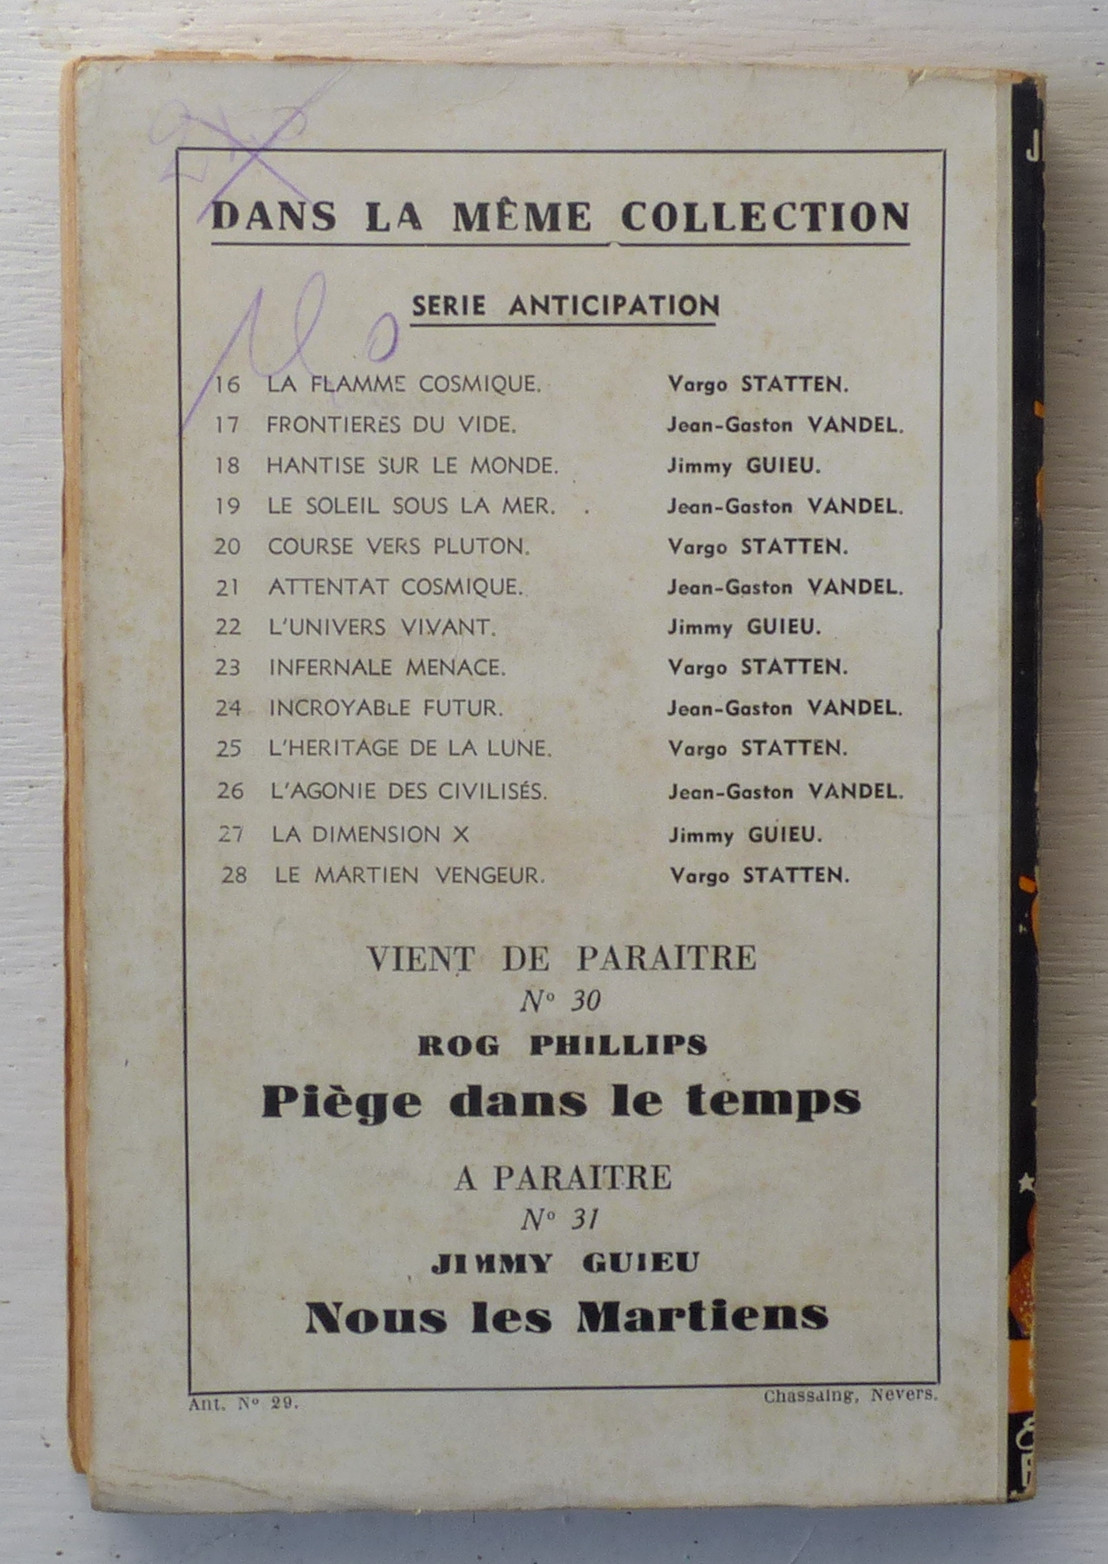 DANS LA MÊME COLLECTION
SERIE ANTICIPATION
16 LA FLAMME COSMIQUE. Vargo STATTEN.
17 FRONTIERES DU VIDE. Jean-Gaston VANDEL.
18 HANTISE SUR LE MONDE. Jimmy GUIEU.
19 LE SOLEIL SOUS LA MER. . Jean-Gaston VANDEL.
20 COURSE VERS PLUTON. Vargo STATTEN.
21 ATTENTAT COSMIQUE. Jean-Gaston VANDEL.
22 L'UNIVERS VIVANT. Jimmy GUIEU.
23 INFERNALE MENACE. Vargo STATTEN.
24 INCROYABLE FUTUR. Jean-Gaston VANDEL.
25 L'HERITAGE DE LA LUNE. Vargo STATTEN.
26 L'AGONIE DES CIVILISÉS. Jean-Gaston VANDEL.
27 LA DIMENSION X Jimmy GUIEU.
28 LE MARTIEN VENGEUR. Vargo STATTEN.
VIENT DE PARAITRE
Nº 30
ROG PHILLIPS
Piège dans le temps
A PARAITRE
Nº 31
JIMMY GUIEU
Nous les Martiens
Ant. Nº 29. Chassaing, Nevers.